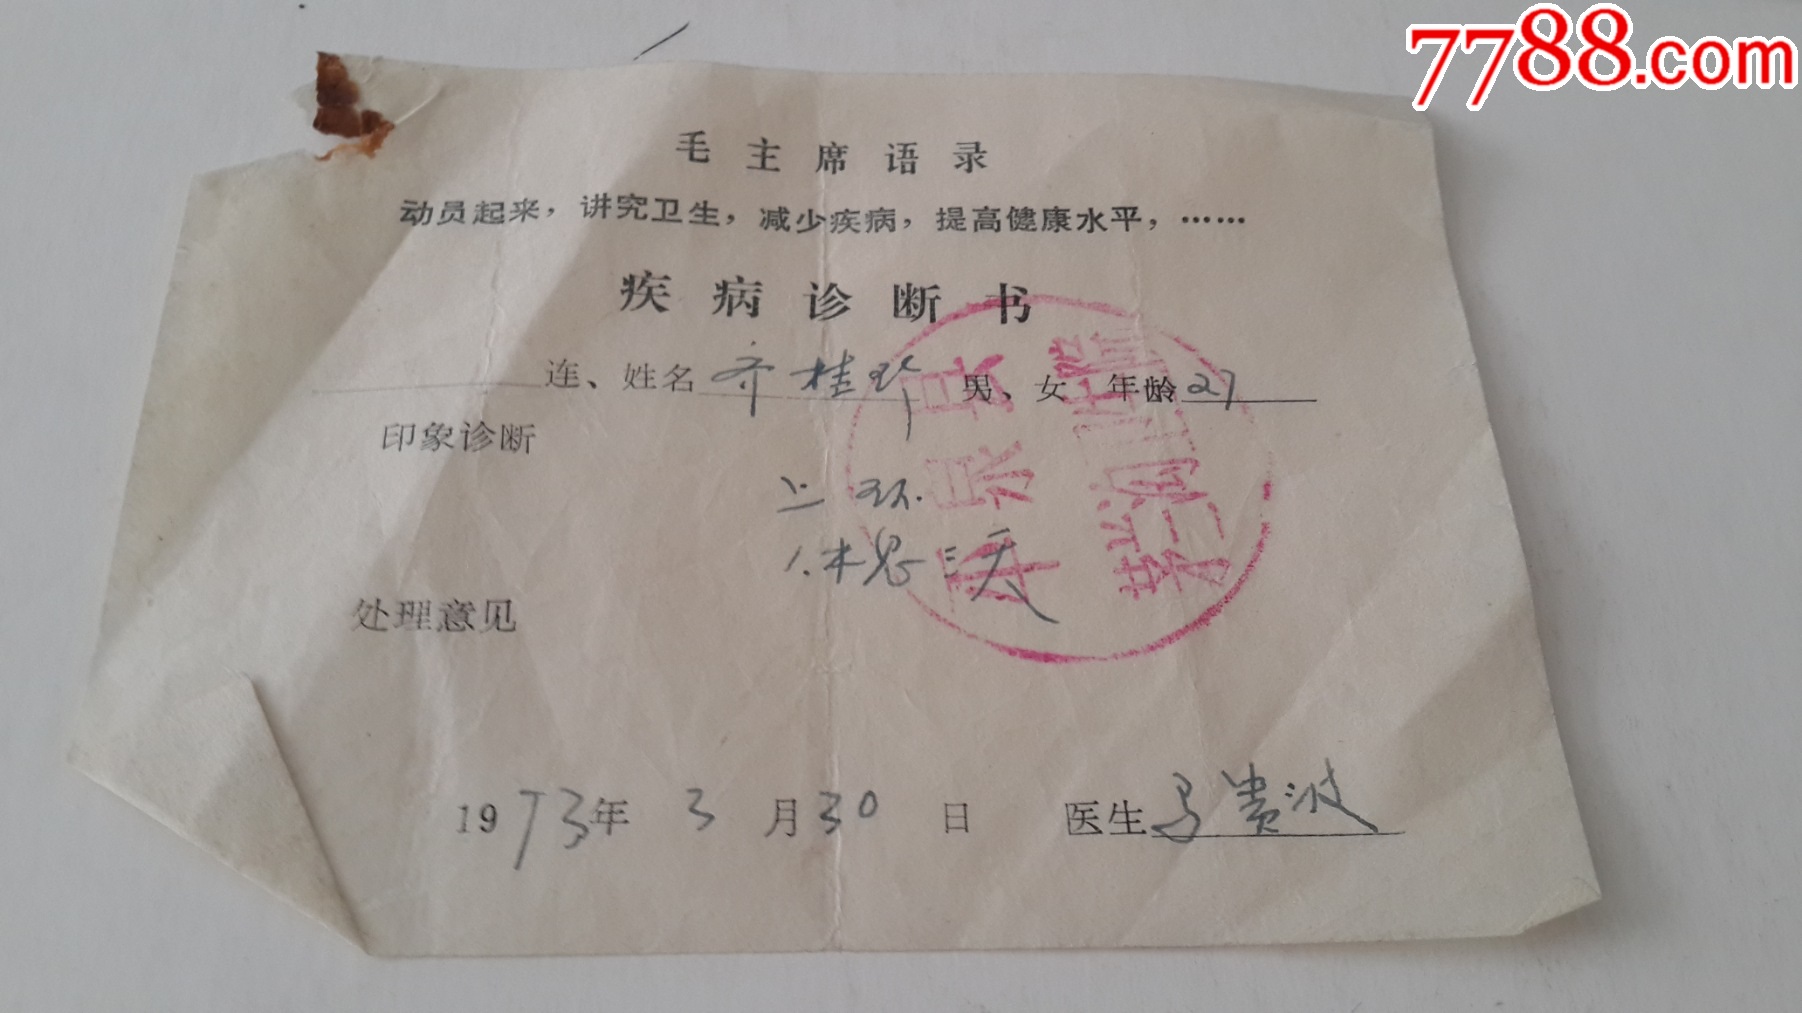 7788.com
毛主席语录
动员起来，讲究卫生，减少疾病，提高健康水平，……
疾病诊断书
连、姓名 齐桂珍 男、女 年龄 27
印象诊断
上环.
休息三天
处理意见
1973年 3月30日 医生 马贵波